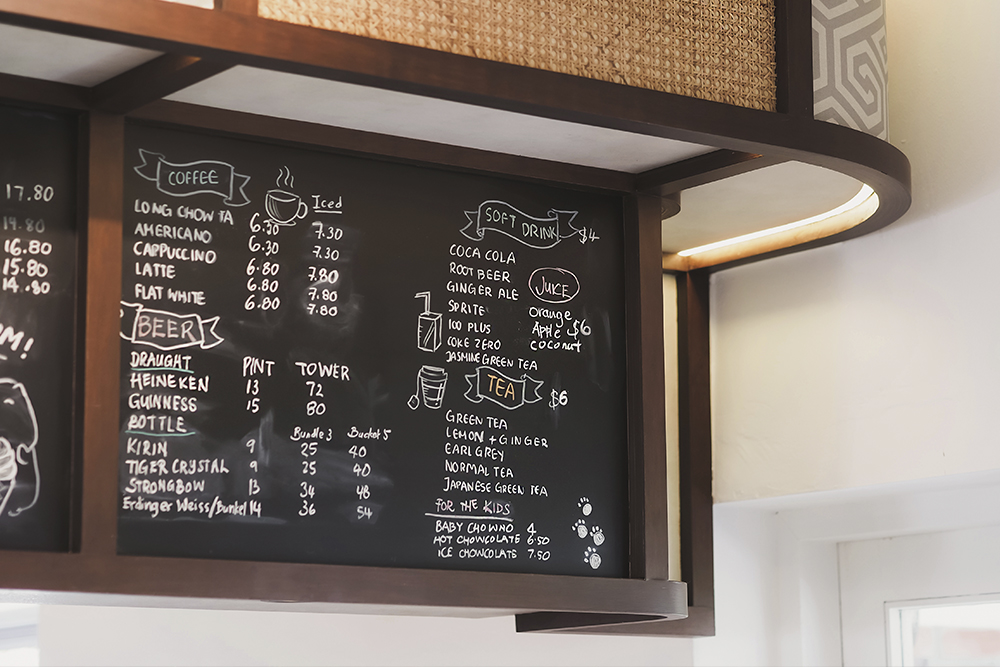 17.80
19.80
16.80
15.80
14.80
M!
COFFEE
Iced
LONG CHOW TA 6.30 7.30
AMERICANO 6.30 7.30
CAPPUCCINO 6.80 7.80
LATTE 6.80 7.80
FLAT WHITE 6.80 7.80
BEER
DRAUGHT PINT TOWER
HEINEKEN 13 72
GUINNESS 15 80
BOTTLE Bundle 3 Bucket 5
KIRIN 9 25 40
TIGER CRYSTAL 9 25 40
STRONGBOW 13 34 48
Erdinger Weiss/Dunkel 14 36 54
SOFT DRINK $4
COCA COLA
ROOT BEER
GINGER ALE
SPRITE
100 PLUS
COKE ZERO
JASMINE GREEN TEA
JUICE
orange
Apple $6
coconut
TEA $6
GREEN TEA
LEMON + GINGER
EARL GREY
NORMAL TEA
JAPANESE GREEN TEA
FOR THE KIDS
BABY CHOWNO 4
HOT CHOWCOLATE 6.50
ICE CHOWCOLATE 7.50